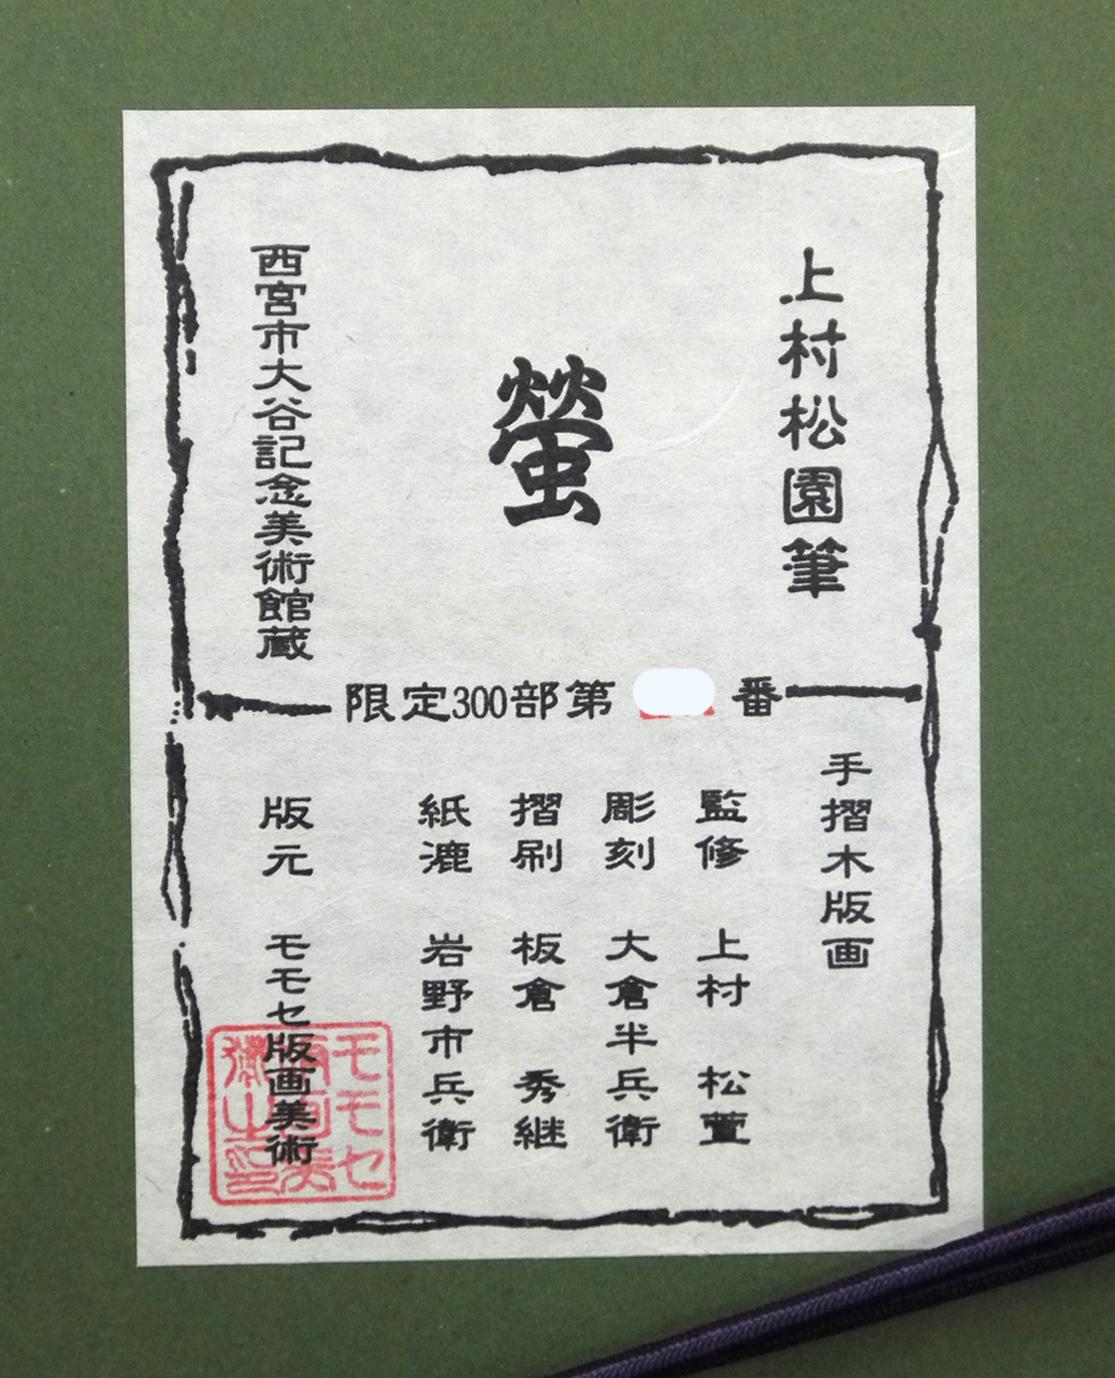 上村松園筆
螢
西宮市大谷記念美術館蔵
限定300部第 番
手摺木版画
監修 上村 松萱
彫刻 大倉半兵衛
摺刷 板倉 秀継
紙漉 岩野市兵衛
版元 モモセ版画美術
モモセ
版画美
術之印